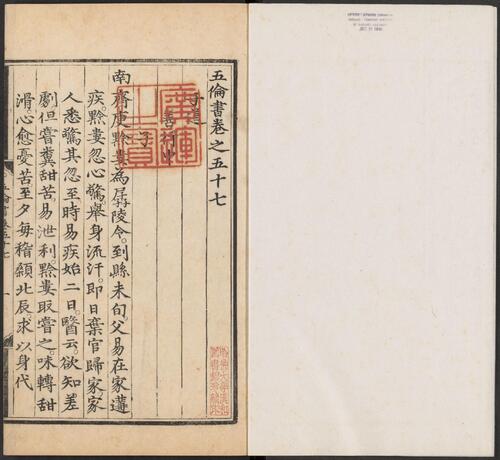 五倫書卷之五十七
子道
善行中
子
南齊庾黔婁為孱陵令。到縣未旬。父易在家遘
疾。黔婁忽心驚。舉身流汗。即日棄官歸家。家
人悉驚其忽至。時易疾始二日。醫云。欲知差
劇。但嘗糞甜苦。易泄利。黔婁取嘗之。味轉甜
滑。心愈憂苦。至夕每稽顙北辰。求以身代